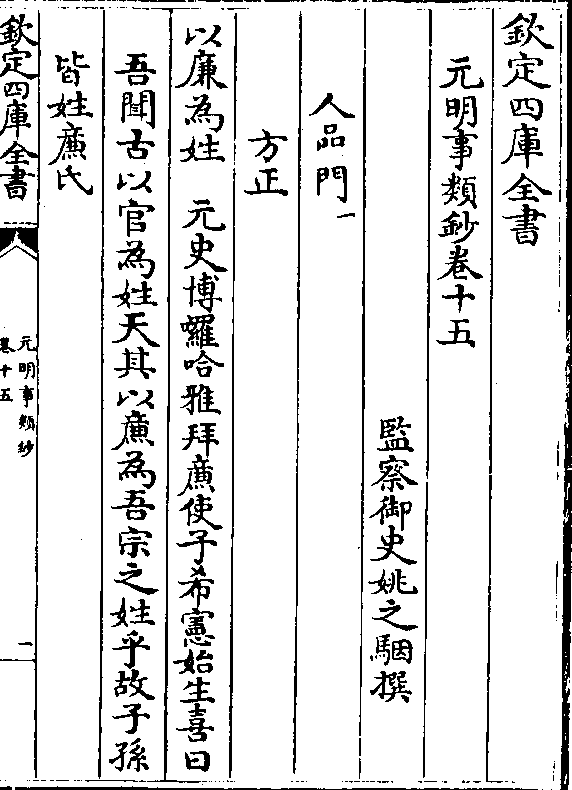 欽定四庫全書
元明事類鈔卷十五
監察御史姚之駰撰
人品門一
方正
以廉為姓　元史博囉哈雅拜廉使子希憲始生喜曰
吾聞古以官為姓天其以廉為吾宗之姓乎故子孫
皆姓廉氏
欽定四庫全書
元明事類鈔
卷十五
一